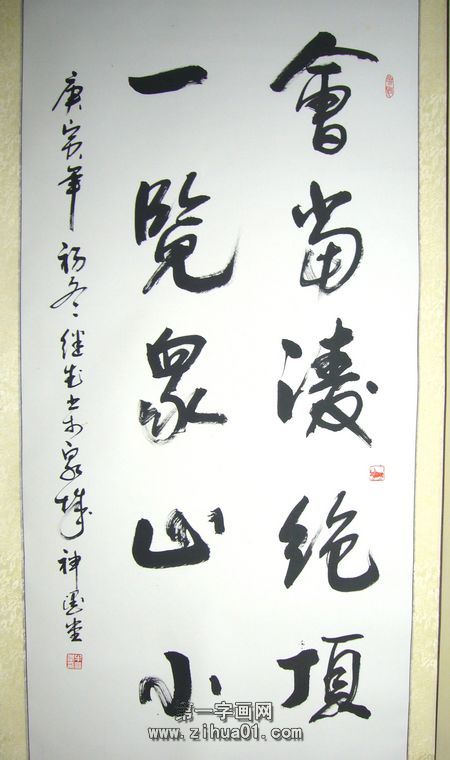 會當凌絕頂
一覽衆山小
庚寅年初冬继先书於泉城神墨堂
第一字画网
www.zihua01.com